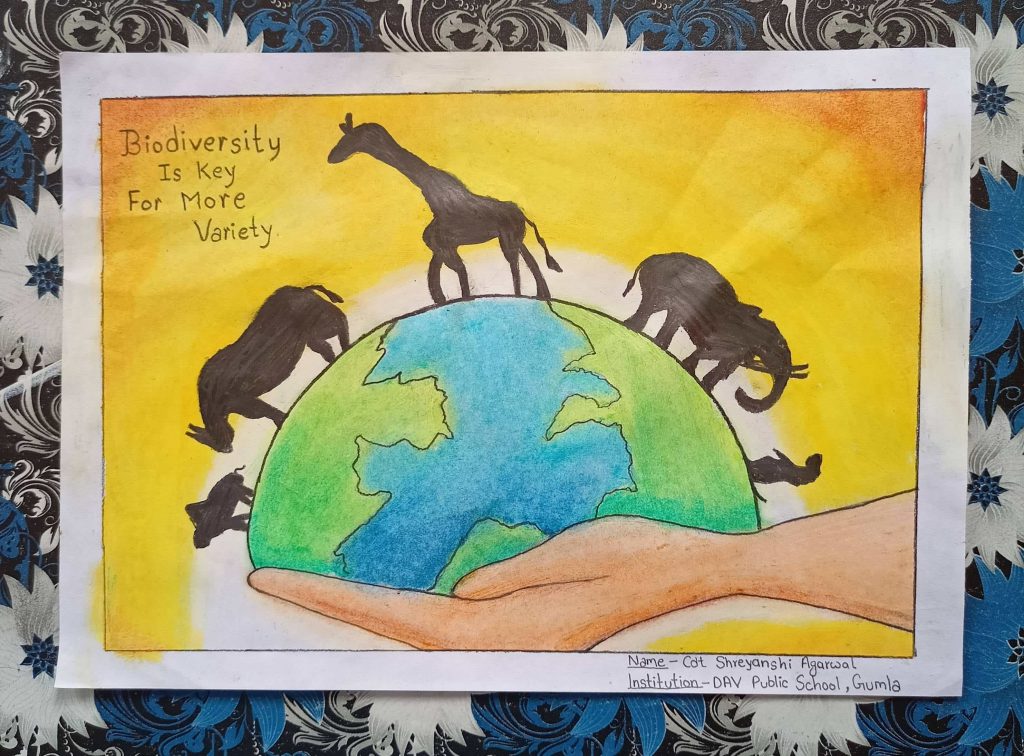 Biodiversity
Is Key
For More
Variety.
Name - Cdt Shreyanshi Agarwal
Institution - DAV Public School, Gumla